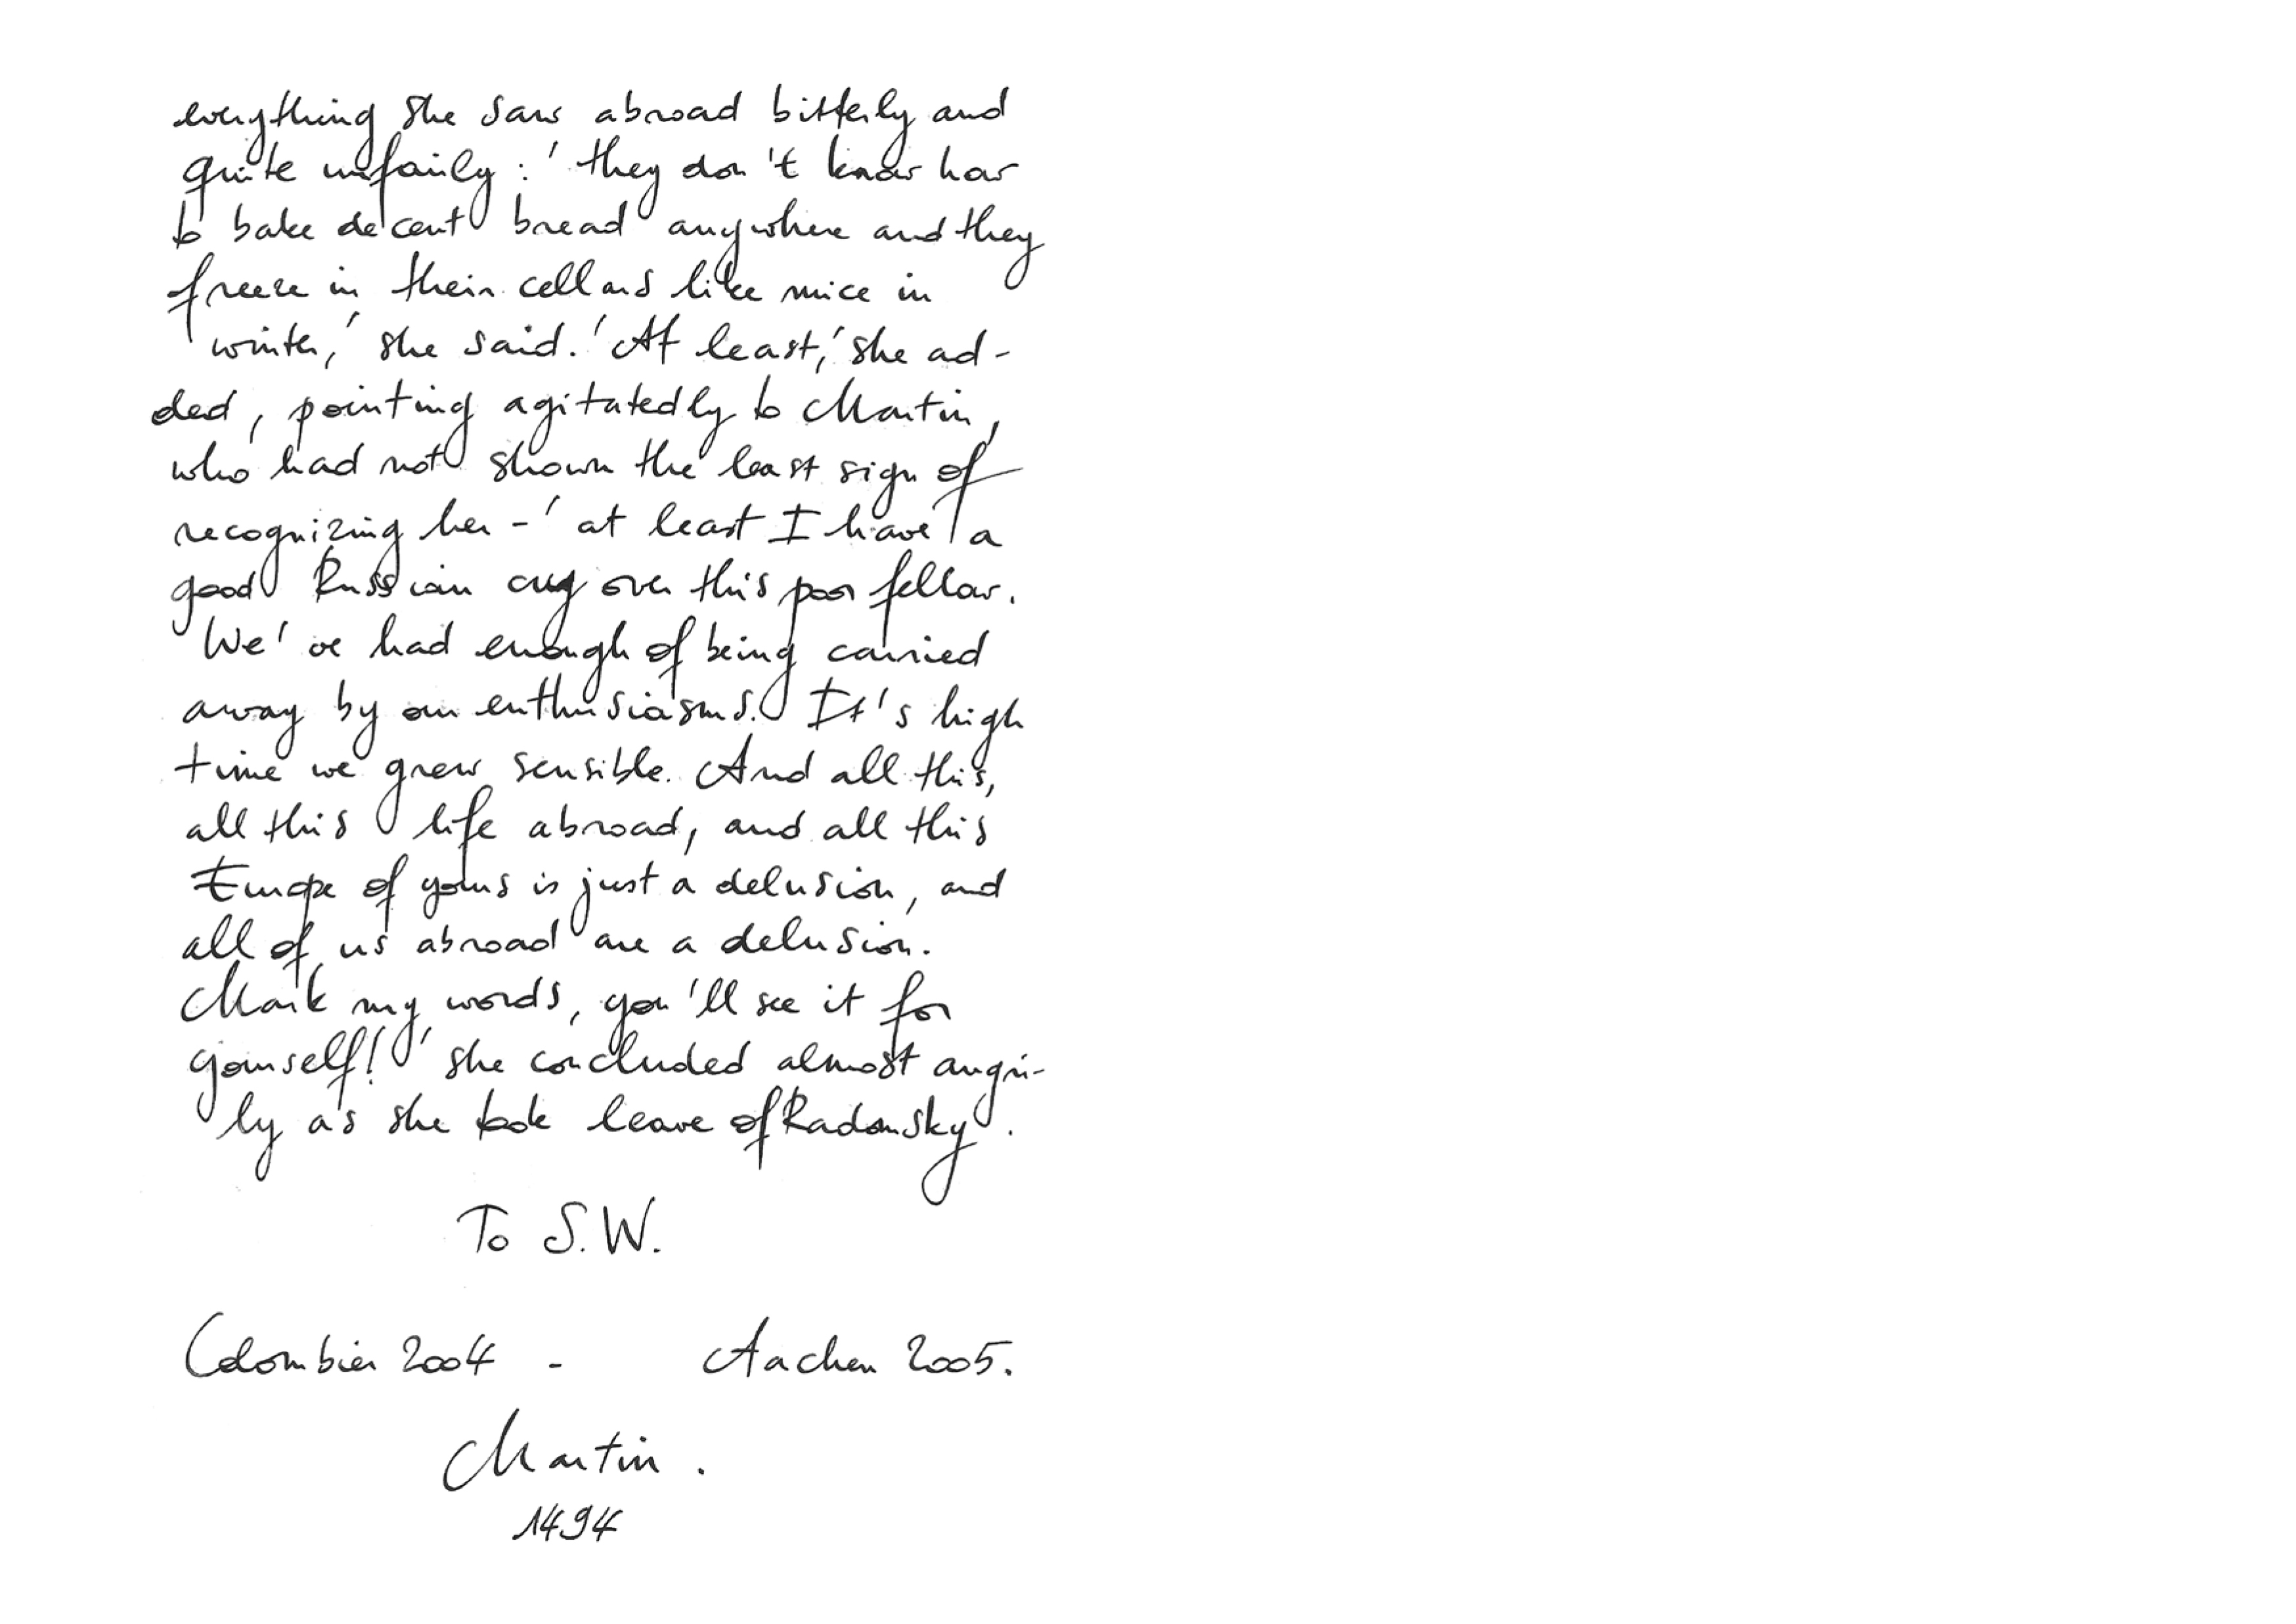 everything she saw abroad bitterly and
quite unfairly : 'they don't know how
to bake decent bread anywhere and they
freeze in their cellars like mice in
winter,' she said. 'At least,' she ad-
ded, pointing agitatedly to Martin,
who had not shown the least sign of
recognizing her - 'at least I have a
good Russian cry over this poor fellow.
We've had enough of being carried
away by our enthusiasms. It's high
time we grew sensible. And all this,
all this life abroad, and all this
Europe of yours is just a delusion, and
all of us abroad are a delusion.
Mark my words, you'll see it for
yourself!' she concluded almost angri-
ly as she took leave of Radomsky.
To S.W.
Colombier 2004 - Aachen 2005.
Martin.
1494